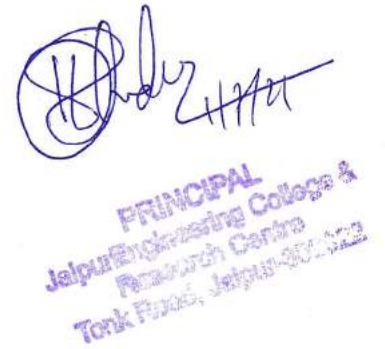 PRINCIPAL
Jaipur Engineering College &
Research Centre
Tonk Road, Jaipur-302022